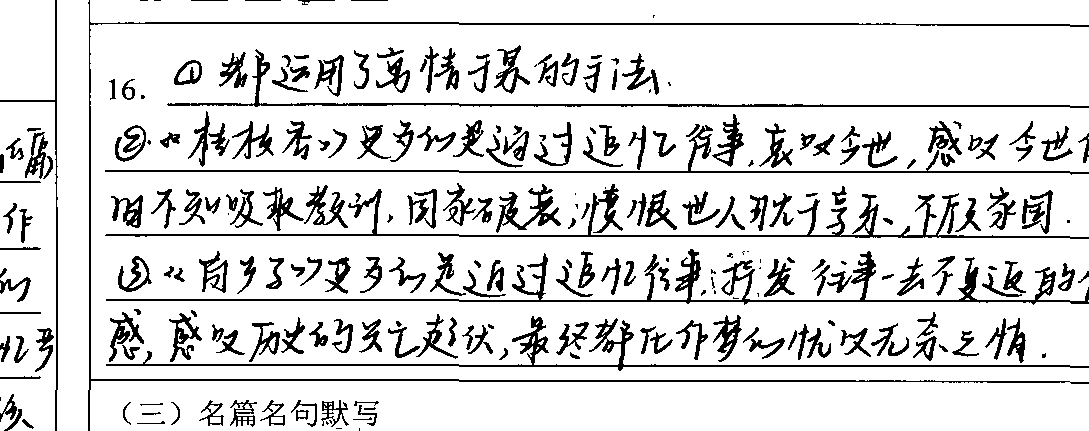 16. ①都运用了寓情于景的手法.
②.《桂枝香》更多的是通过追忆往事,哀叹今世,感叹今世
不知吸取教训,国家破衰,愤恨世人耽于享乐、不顾家国.
③.《南乡子》更多的是通过追忆往事,抒发往事一去不复返的
感,感叹历史的兴亡起伏,最终都化作梦的忧叹无奈之情.
(三)名篇名句默写
作